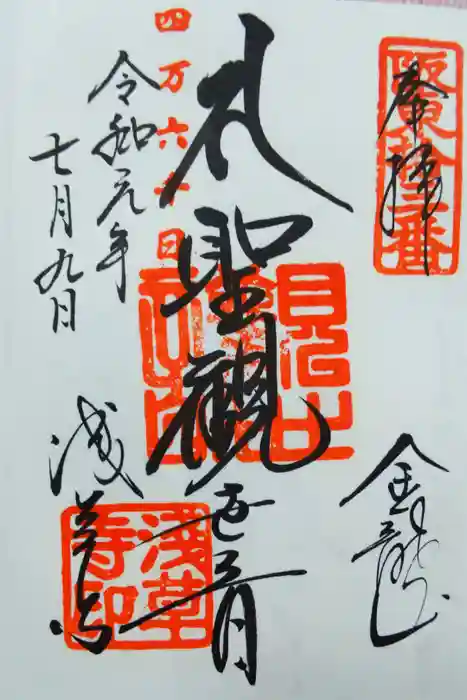 奉拝
金龍山
礼聖観世音
四万六千日
令和元年
七月九日
浅草寺
浅草
寺印